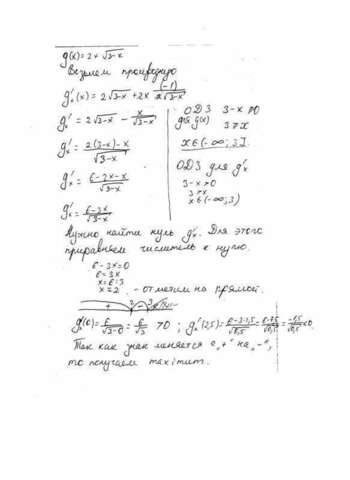 g(x) = 2x √3-x
Возьмем производную
g'ₓ(x) = 2√3-x + 2x (-1)/2√3-x
g'ₓ = 2√3-x - x/√3-x
g'ₓ = 2(3-x)-x/√3-x
g'ₓ = 6-2x-x/√3-x
g'ₓ = 6-3x/√3-x
ОДЗ 3-x ≥0
для g(x)
3 ≥ x
x∈(-∞; 3].
ОДЗ для g'ₓ
3-x>0
3>x
x∈(-∞; 3)
Нужно найти нуль g'ₓ. Для этого
приравняем числитель к нулю.
6-3x=0
6=3x
x=6:3
x=2. - отметим на прямой.
+ 2 - 3
g'(0) = 6/√3-0 = 6/√3 >0 ; g'ₓ(2,5) = 6-3·2,5/√0,5 = 6-7,5/√0,5 = -1,5/√0,5 <0.
Так как знак меняется с „+" на „-",
то получаем maximum.